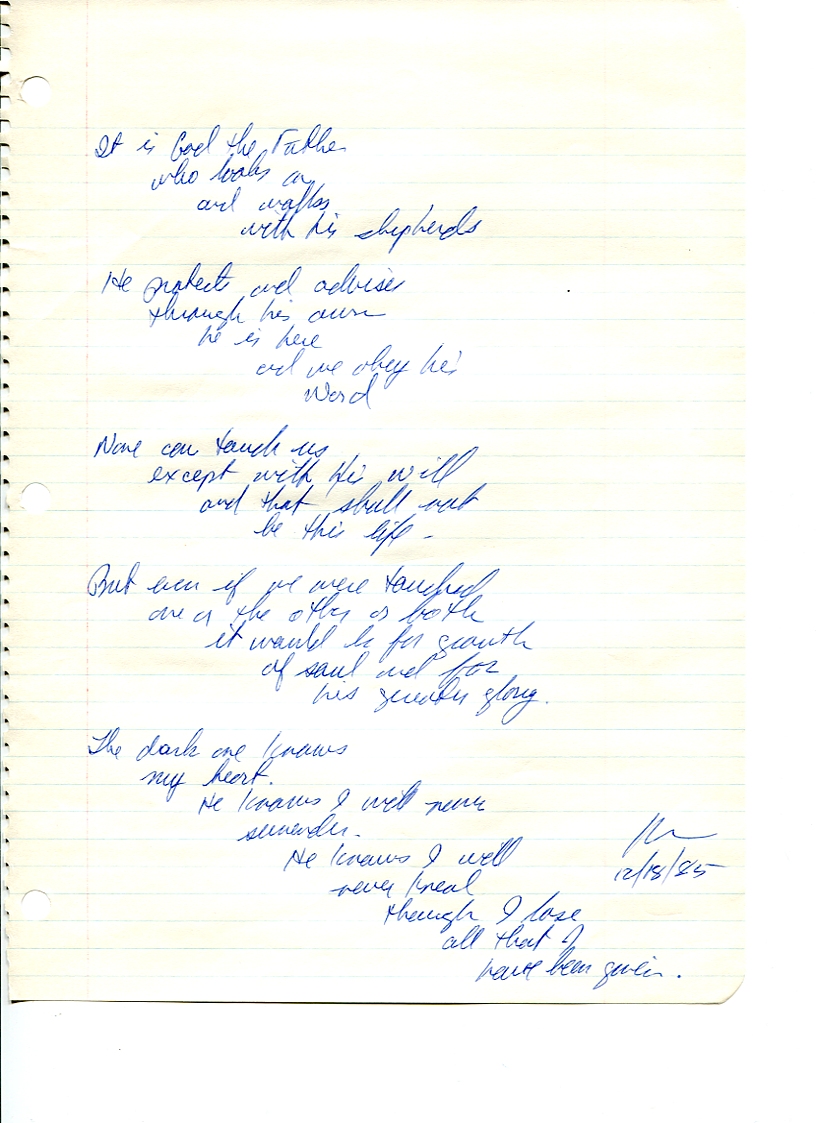 It is God the Father
who looks on
and walks
with his shepherds
He protects and advises
through his own
he is here
and we obey his
Word
None can touch us
except with His will
and that shall not
be this life -
But even if we were touched
one or the other or both
it would be for growth
of soul and for
his greater glory.
The dark one knows
my heart.
He knows I will never
surrender.
He knows I will
never kneel
though I lose
all that I
have been given.
12/18/85